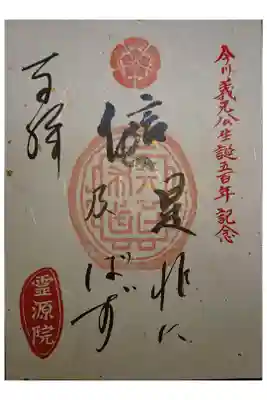 今川義元公生誕五百年記念
是非に
及ばず
信
奉拝
靈源院